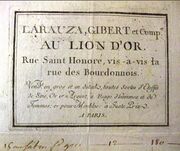 LARAUZA, GIBERT et Comp.
AU LION D'OR.
Rue Saint Honoré, vis-à-vis la
rue des Bourdonnois.
Vend en gros et en détail, toutes Sortes d'Etoffes
de Soie, Or et Argent, à l'usage d'hommes et de
Femmes; et pour Meubles, à Juste Prix.
A PARIS.
12
180